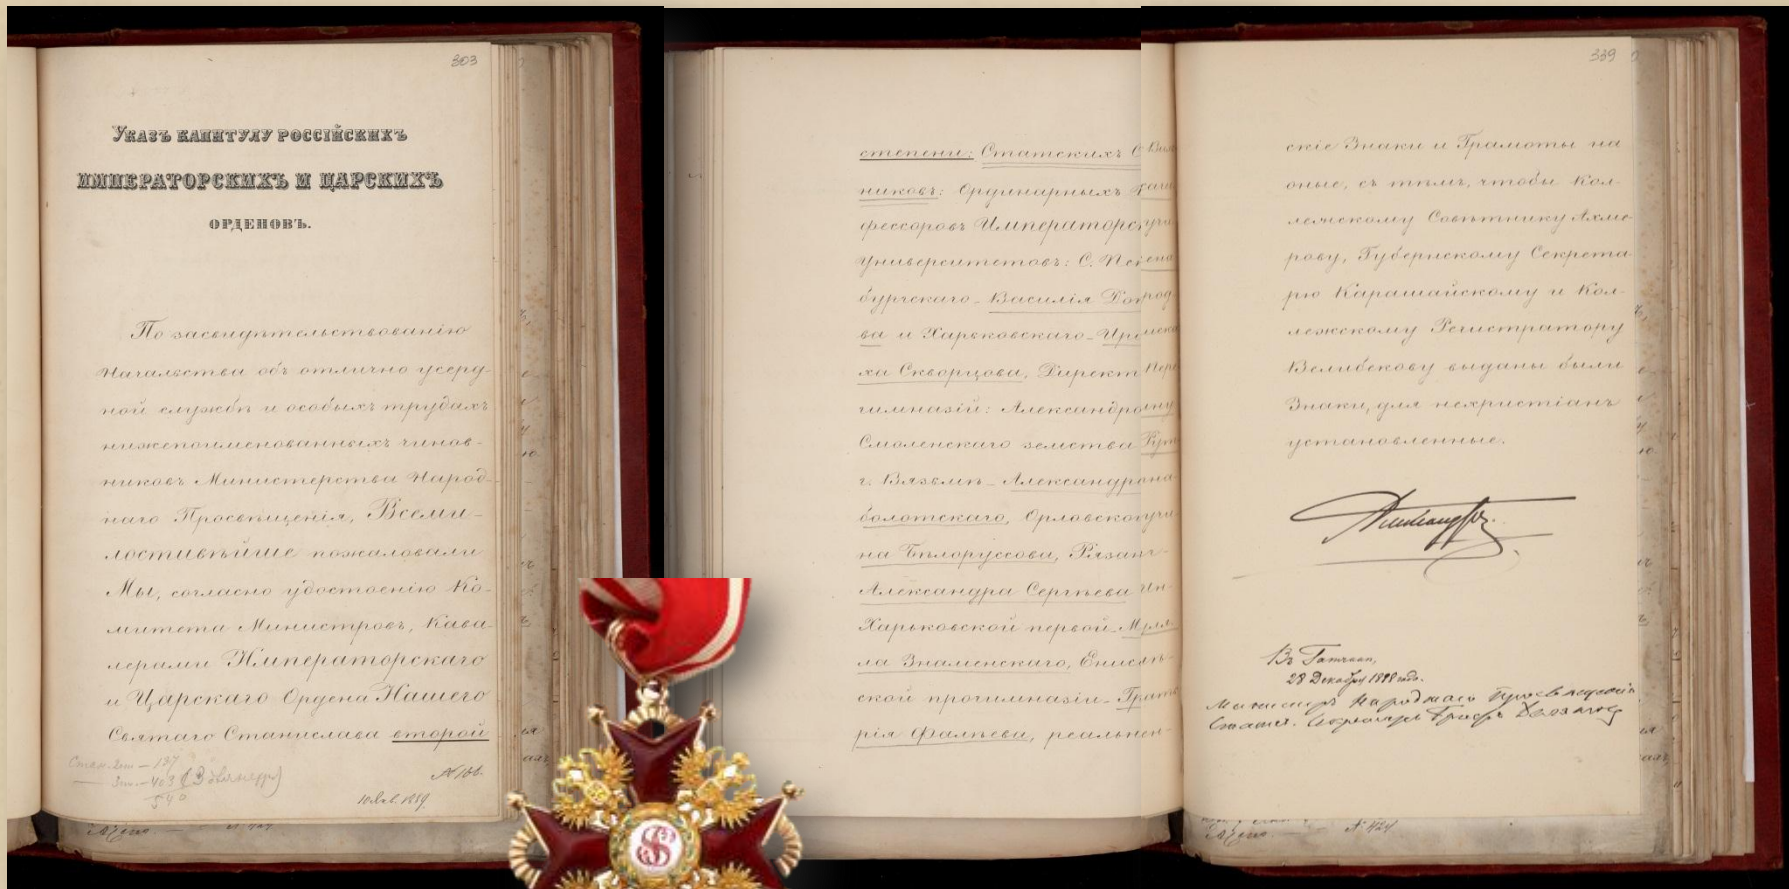 303
Указъ капитулу россійскихъ
императорскихъ и царскихъ
орденовъ.
По засвидѣтельствованію
Начальства объ отлично усерд-
ной службѣ и особыхъ трудахъ
нижепоименованныхъ чинов-
никовъ Министерства Народ-
наго Просвѣщенія, Всеми-
лостивѣйше пожаловали
Мы, согласно удостоенію Ко-
митета Министровъ, Кава-
лерами Императорскаго
и Царскаго Ордена Нашего
Святаго Станислава второй
№ 166.
10 Янв. 1889.
степени: Статскихъ С
никовъ: Ординарныхъ
фессоровъ Императорс
Университетовъ: С. Пе
бургскаго - Василія
ва и Харьковскаго - Ири
ха Скворцова, Директ
гимназій: Александро
Смоленскаго земства
г. Вязьмѣ - Александра
болотскаго, Орловско
на Бѣлоруссова, Рязан
Александра Сергѣева
Харьковской первой -
ла Знаменскаго, Енисей-
ской прогимназіи -
рія Фалѣева, реальн
339
скіе Знаки и Грамоты на
оные, съ тѣмъ, чтобы Кол-
лежскому Совѣтнику Ахме-
рову, Губернскому Секрета-
рю Карашайскому и Кол-
лежскому Регистратору
Велибекову выданы были
Знаки, для нехристіанъ
установленные.
Александръ
Въ Гатчинѣ,
28 Декабря 1888 года.
Министръ Народнаго Просвѣщенія
Статсъ-Секретарь Графъ Деляновъ
№ 424